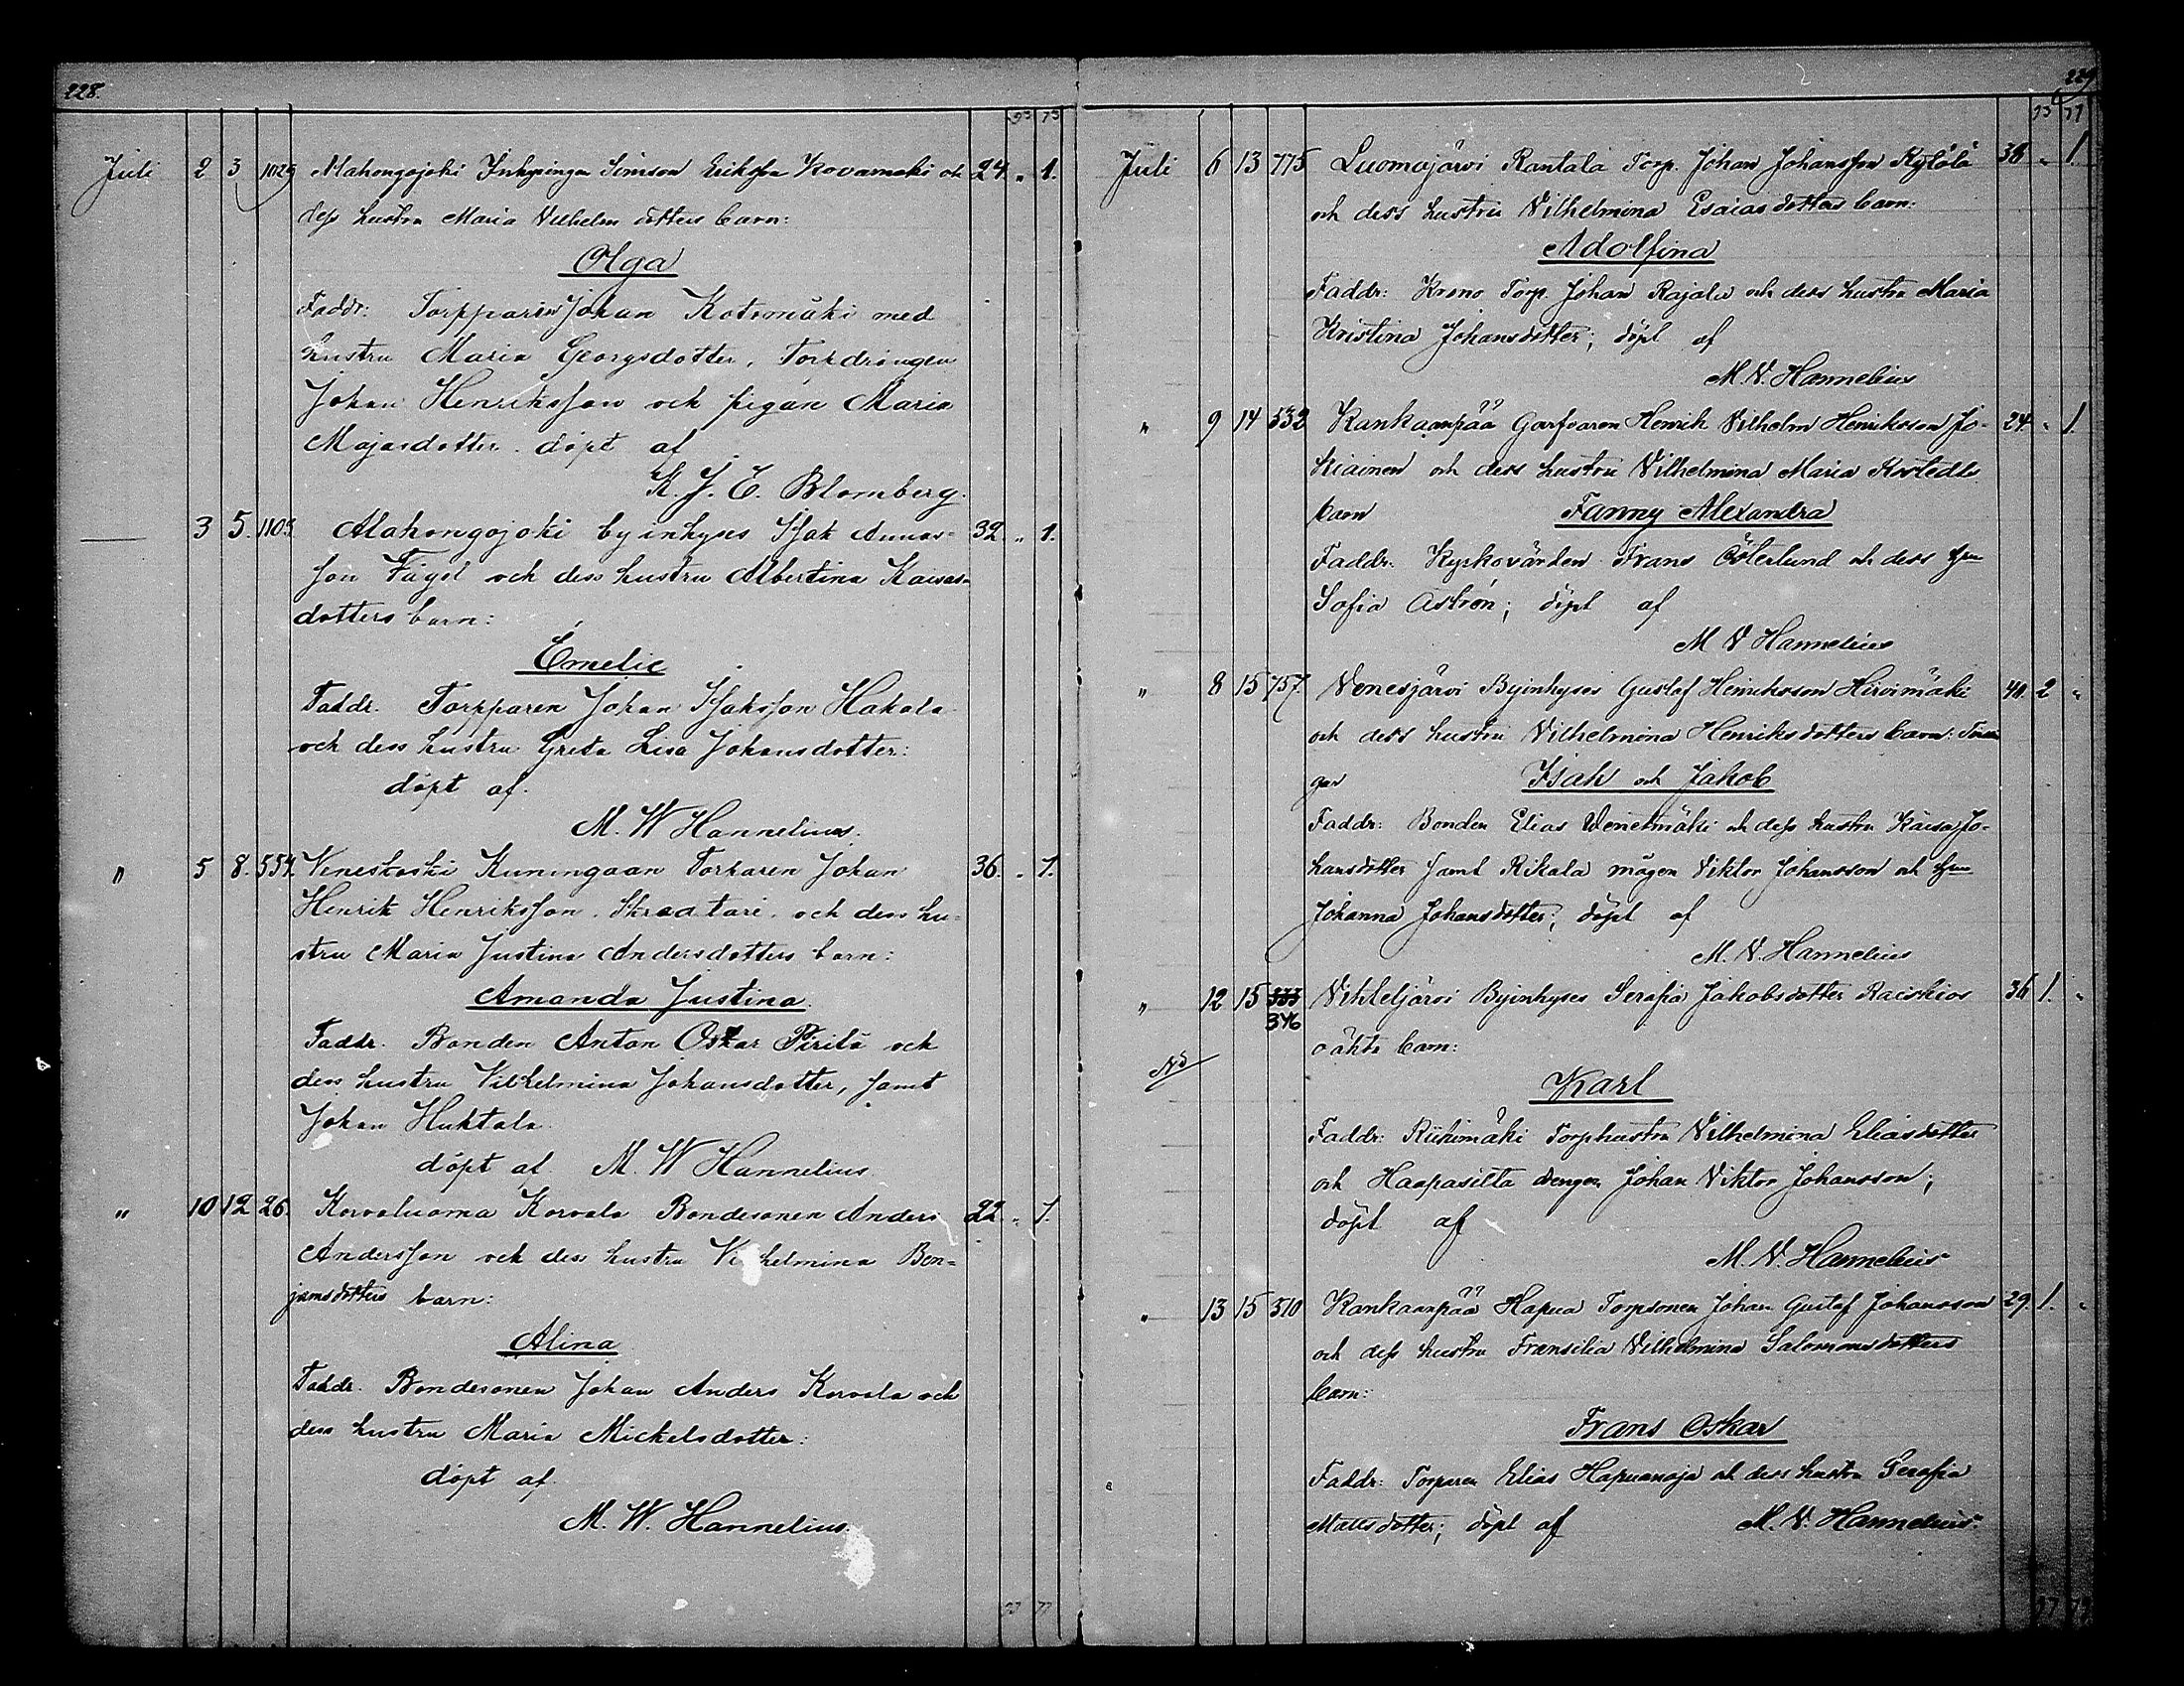 228.
93 75
Juli 2 3 1029 Alahongojoki Inhysingen Simson Eriksson Kovamäki och 24. " 1.
dess hustru Maria Vilhelms dotters barn:
Olga
Faddr: Torpparen Johan Kotomäki med
hustru Maria Georgsdotter, Torpdrängen
Johan Henriksson och pigan Maria
Majasdotter. döpt af
K. J. E. Blomberg.
— 3 5. 1103. Alahongojoki byinhyses Isak Annas- 32. " 1.
son Fågel och dess hustru Albertina Kaisas-
dotters barn:
Emelie
Faddr. Torpparen Johan Isaksson Hakala
och dess hustru Greta Lisa Johansdotter:
döpt af.
M. W Hannelius.
" 5 8. 554. Veneskoski Kuningaan Torparen Johan 36. " 1.
Henrik Henriksson. Skradtari och dess hu-
stru Maria Justina Andersdotters barn:
Amanda Justina.
Faddr. Bonden Anton Oskar Pirilä och
dess hustru Vilhelmina Johansdotter, samt
Johan Huktala.
döpt af. M. W Hannelius
" 10 12 26. Korvaluoma Korvala Bondesonen Anders 22 " 1.
Andersson och dess hustru Vilhelmina Ben-
jamsdotters barn:
Alina
Faddr. Bondesonen Johan Anders Korvala och
dess hustru Maria Mickelsdotter:
döpt af.
M. W. Hannelius.
93 77
229
93 77
Juli 6 13 775 Luomajärvi Rantala Torp. Johan Johansson Kylölä 38 " 1.
och dess hustru Vilhelmina Esaias dotters barn:
Adolfina
Faddr: Krono Torp. Johan Rajala och dess hustru Maria
Kristina Johansdotter; döpt af
M. V. Hannelius
" 9 14 532 Kankaanpää Garfvaren Henrik Vilhelm Henriksson Jo- 24. " 1.
kiainen och dess hustru Vilhelmina Maria Korstedts
barn Fanny Alexandra
Faddr. Kyrkovärden Frans Österlund och dess hru
Sofia Åström; döpt af
M V Hannelius
" 8 15 757. Venesjärvi Byinhyses Gustaf Henriksson Hirvimäki 40. 2 "
och dess hustru Vilhelmina Henriksdotters barn: Tvin
gar Isak och Jakob
Faddr: Bonden Elias Venetmäki och dess hustru Kaisa Jo-
hansdotter samt Rikala mågen Viktor Johansson och hru
Johanna Johansdotter; döpt af
M. V. Hannelius
" 12 15 333 Vihteljärvi Byinhyses Serafia Jakobsdotter Raiskios 36 1. "
346
oäkta barn:
Karl
Faddr: Riihimäki Torphustru Vilhelmina Eliasdotter
och Haapasilta drengen Johan Viktor Johansson;
döpt af
M. V. Hannelius
" 13 15 510 Kankaanpää Hapua Torpsonen Johan Gustaf Johansson 29 1. "
och dess hustru Fransilia Vilhelmina Salomonsdotters
barn:
Frans Oskar
Faddr: Torparen Elias Hapuanoja och dess hustru Serafia
Mattsdotter; döpt af M. V. Hannelius.